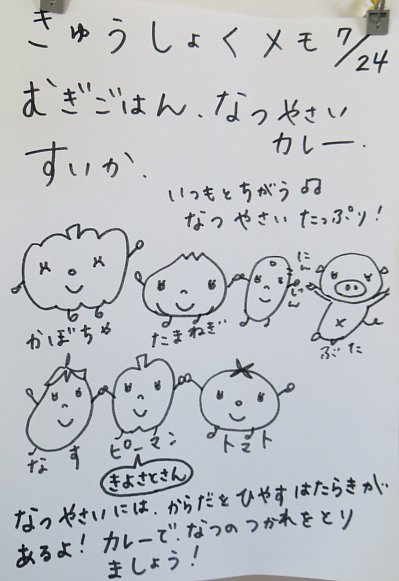 きゅうしょくメモ 7/24
むぎごはん、なつやさい
カレー、
すいか、
いつもとちがう♫
なつやさいたっぷり!
かぼちゃ
たまねぎ
にんじん
ぶた
なす
ピーマン
トマト
きよさとさん
なつやさいには、からだをひやすはたらきが
あるよ! カレーで、なつのつかれをとり
ましょう!